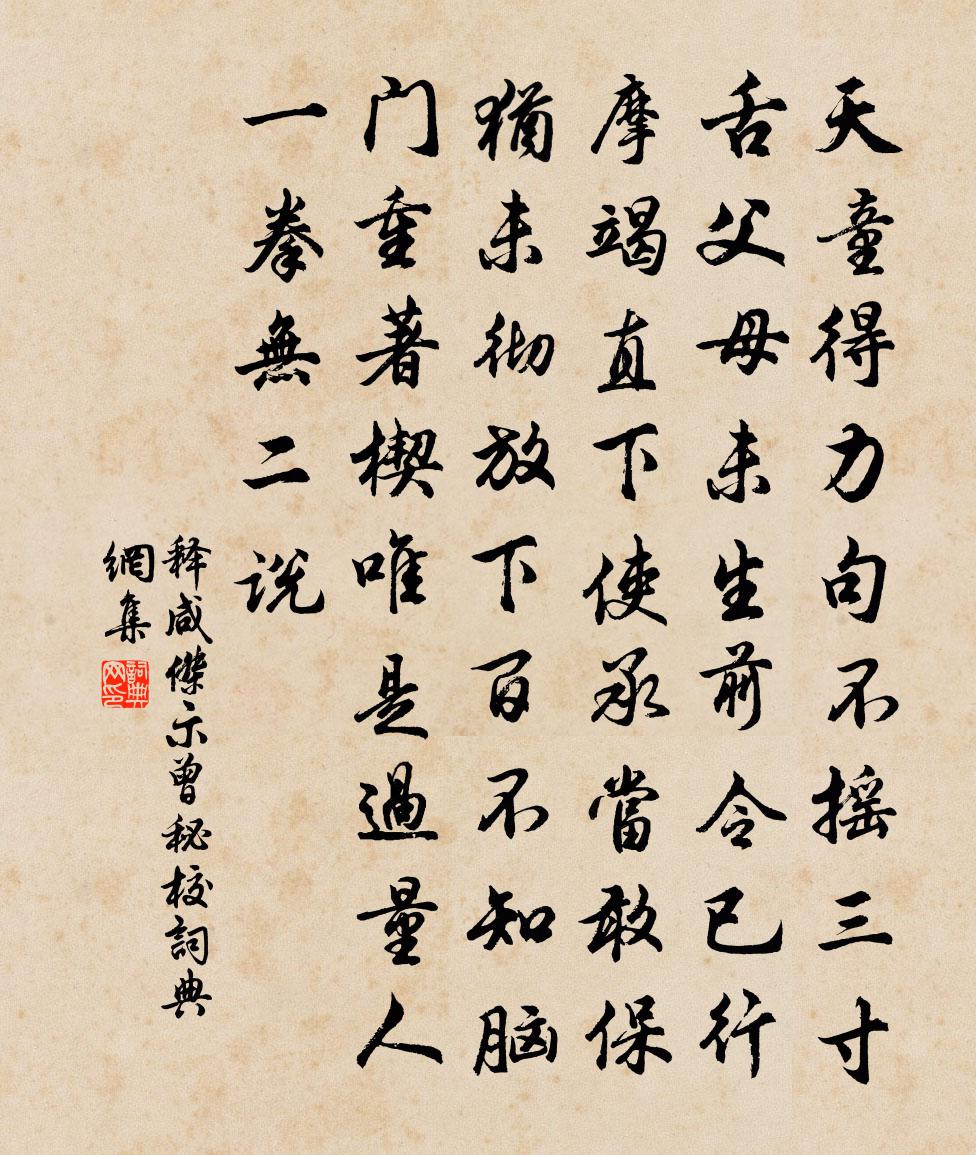 天童得力句不摇三寸
舌父母未生前令已行
摩竭直下使承當敢保
猶未彻放下百不知脑
门重著楔唯是過量人
一拳無二说
释咸傑示曾秘校詞典
網集
詞典
网印